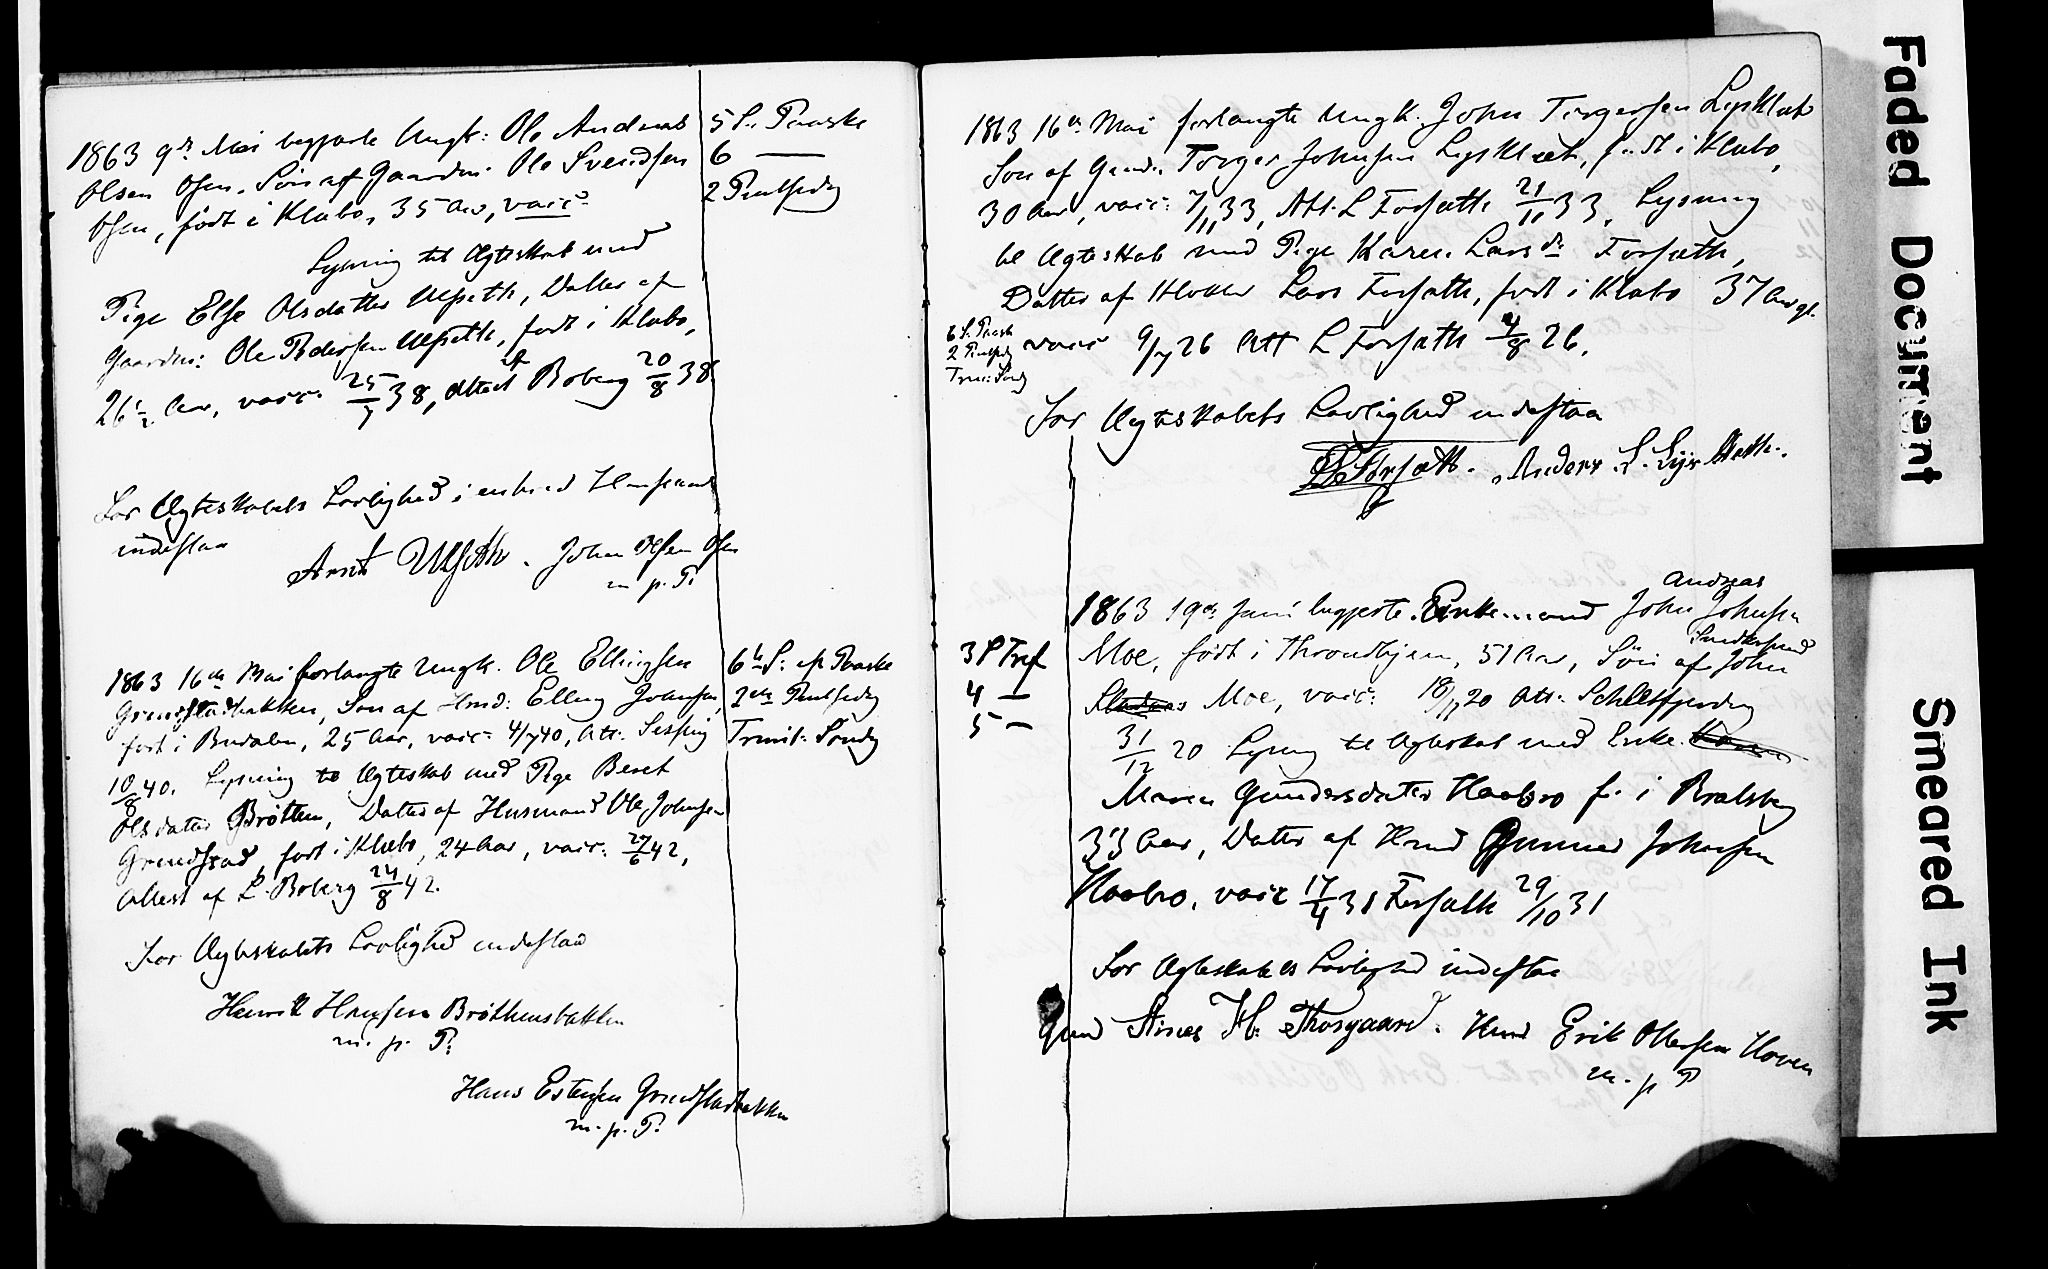 1863 9de Mai begjærte Ungk: Ole Andreas
Olsen Osen, Søn af Gaardm: Ole Svendsen
Osen, født i Klæbo, 35 Aar, vacc:
5 S. Paaske
6 —
2 Pintsedag
Lysning til Ægteskab med
Pige Else Olsdatter Ulseth, Datter af
Gaardm: Ole Pedersen Ulseth, født i Klæbo,
26½ Aar, vacc: 25/7 38, Attest af Boberg 20/8 38.
For Ægteskabets Lovlighed i enhver Henseende
indestaa
Arnt Ulseth. Johan Olsen Osen
m. p. P.
1863 16de Mai forlangte Ungk. Ole Ellingsen
Grendstadbakken, Søn af Hmd: Elling Johnsen,
født i Budalen, 25 Aar, vacc: 4/7 40, Att.
10/8 40. Lysning til Ægteskab med Pige Beret
Olsdatter Brøttem, Datter af Husmand Ole Johnsen
Grendstad, født i Klæbo, 24 Aar, vacc: 27/6 42,
Attest af L. Boberg 24/8 42.
6te S. ef Paaske
2den Pintsedag
Trinit. Søndag
For Ægteskabets Lovlighed indestaa
Henrik Hansen Brøttemsbakken
m. p. P.
Hans Estensen Grendstadbakken
m. p. P.
1863 16de Mai forlangte Ungk. John Torgersen Lysklæt
Søn af Gmd: Torger Johnsen Lysklæt, født i Klæbo,
30 Aar, vacc: 7/11 33, Att. L Forsæth 21/11 33, Lysning
til Ægteskab med Pige Karen Larsdr Forsæth,
Datter af Klokker Lars Forsæth, født i Klæbo 37 Aar gl.
vacc 9/7 26 Att L Forsæth 4/8 26.
6 S. Paask
2 Pintsedg
Trin: Søndg
For Ægteskabets Lovlighed indestaa
L Forsæth. Anders L. Lysklæth.
Andreas
1863 19de Juni begjærte Enkemand John Johnsen
Moe, født i Throndhjem, 51 Aar, Søn af John
Moe, vacc: 18/11 20 Att. Schleffjerding
31/12 20 Lysning til Ægteskab med Enke
Maren Gundersdatter Haabro f. i Bratsberg
33 Aar, Datter af Hmd Gunner Johnsen
Haabro, vacc 17/4 31 Forsæth 29/10 31
3 S Tref
4 —
5 —
For Ægteskabets Lovlighed indestaa
Gmd H. Thorgaard. Hmd Erik Olsen Hoven
m. p. P
Faded Document
Smeared Ink